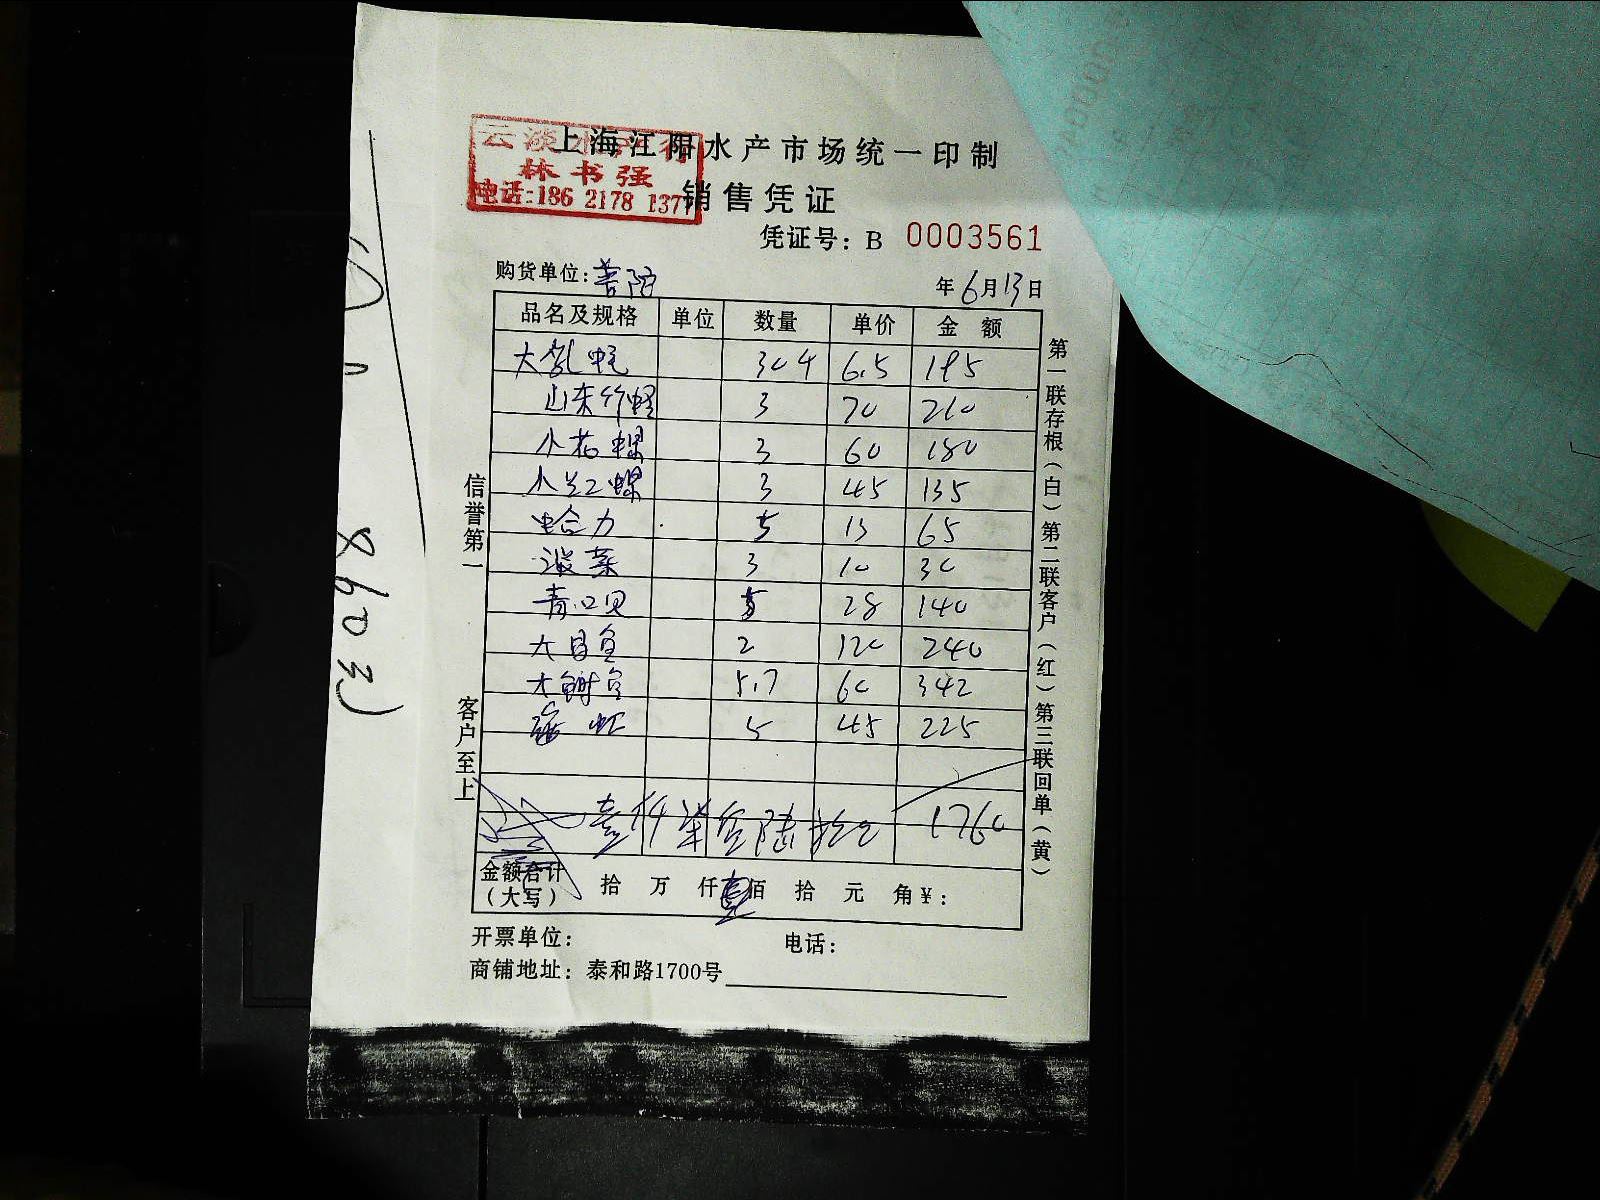 云淡水产行
林书强
电话:186 2178 1377
上海江阳水产市场统一印制
销售凭证
凭证号: B 0003561
购货单位:普陀 年6月13日
品名及规格 单位 数量 单价 金 额
大乳蚝 30 4 6.5 195
山东竹蛏 3 70 210
小花螺 3 60 180
小红螺 3 45 135
蛤力 5 13 65
淡菜 3 10 30
青口贝 5 28 140
大目鱼 2 120 240
大鲥鱼 5.7 60 342
5 45 225
壹仟柒佰陆拾元 1760
金额合计
(大写) 拾 万 仟 佰 拾 元 角¥:
开票单位: 电话:
商铺地址: 泰和路1700号
信誉第一
客户至上
第一联存根(白)第二联客户(红)第三联回单(黄)
860元)